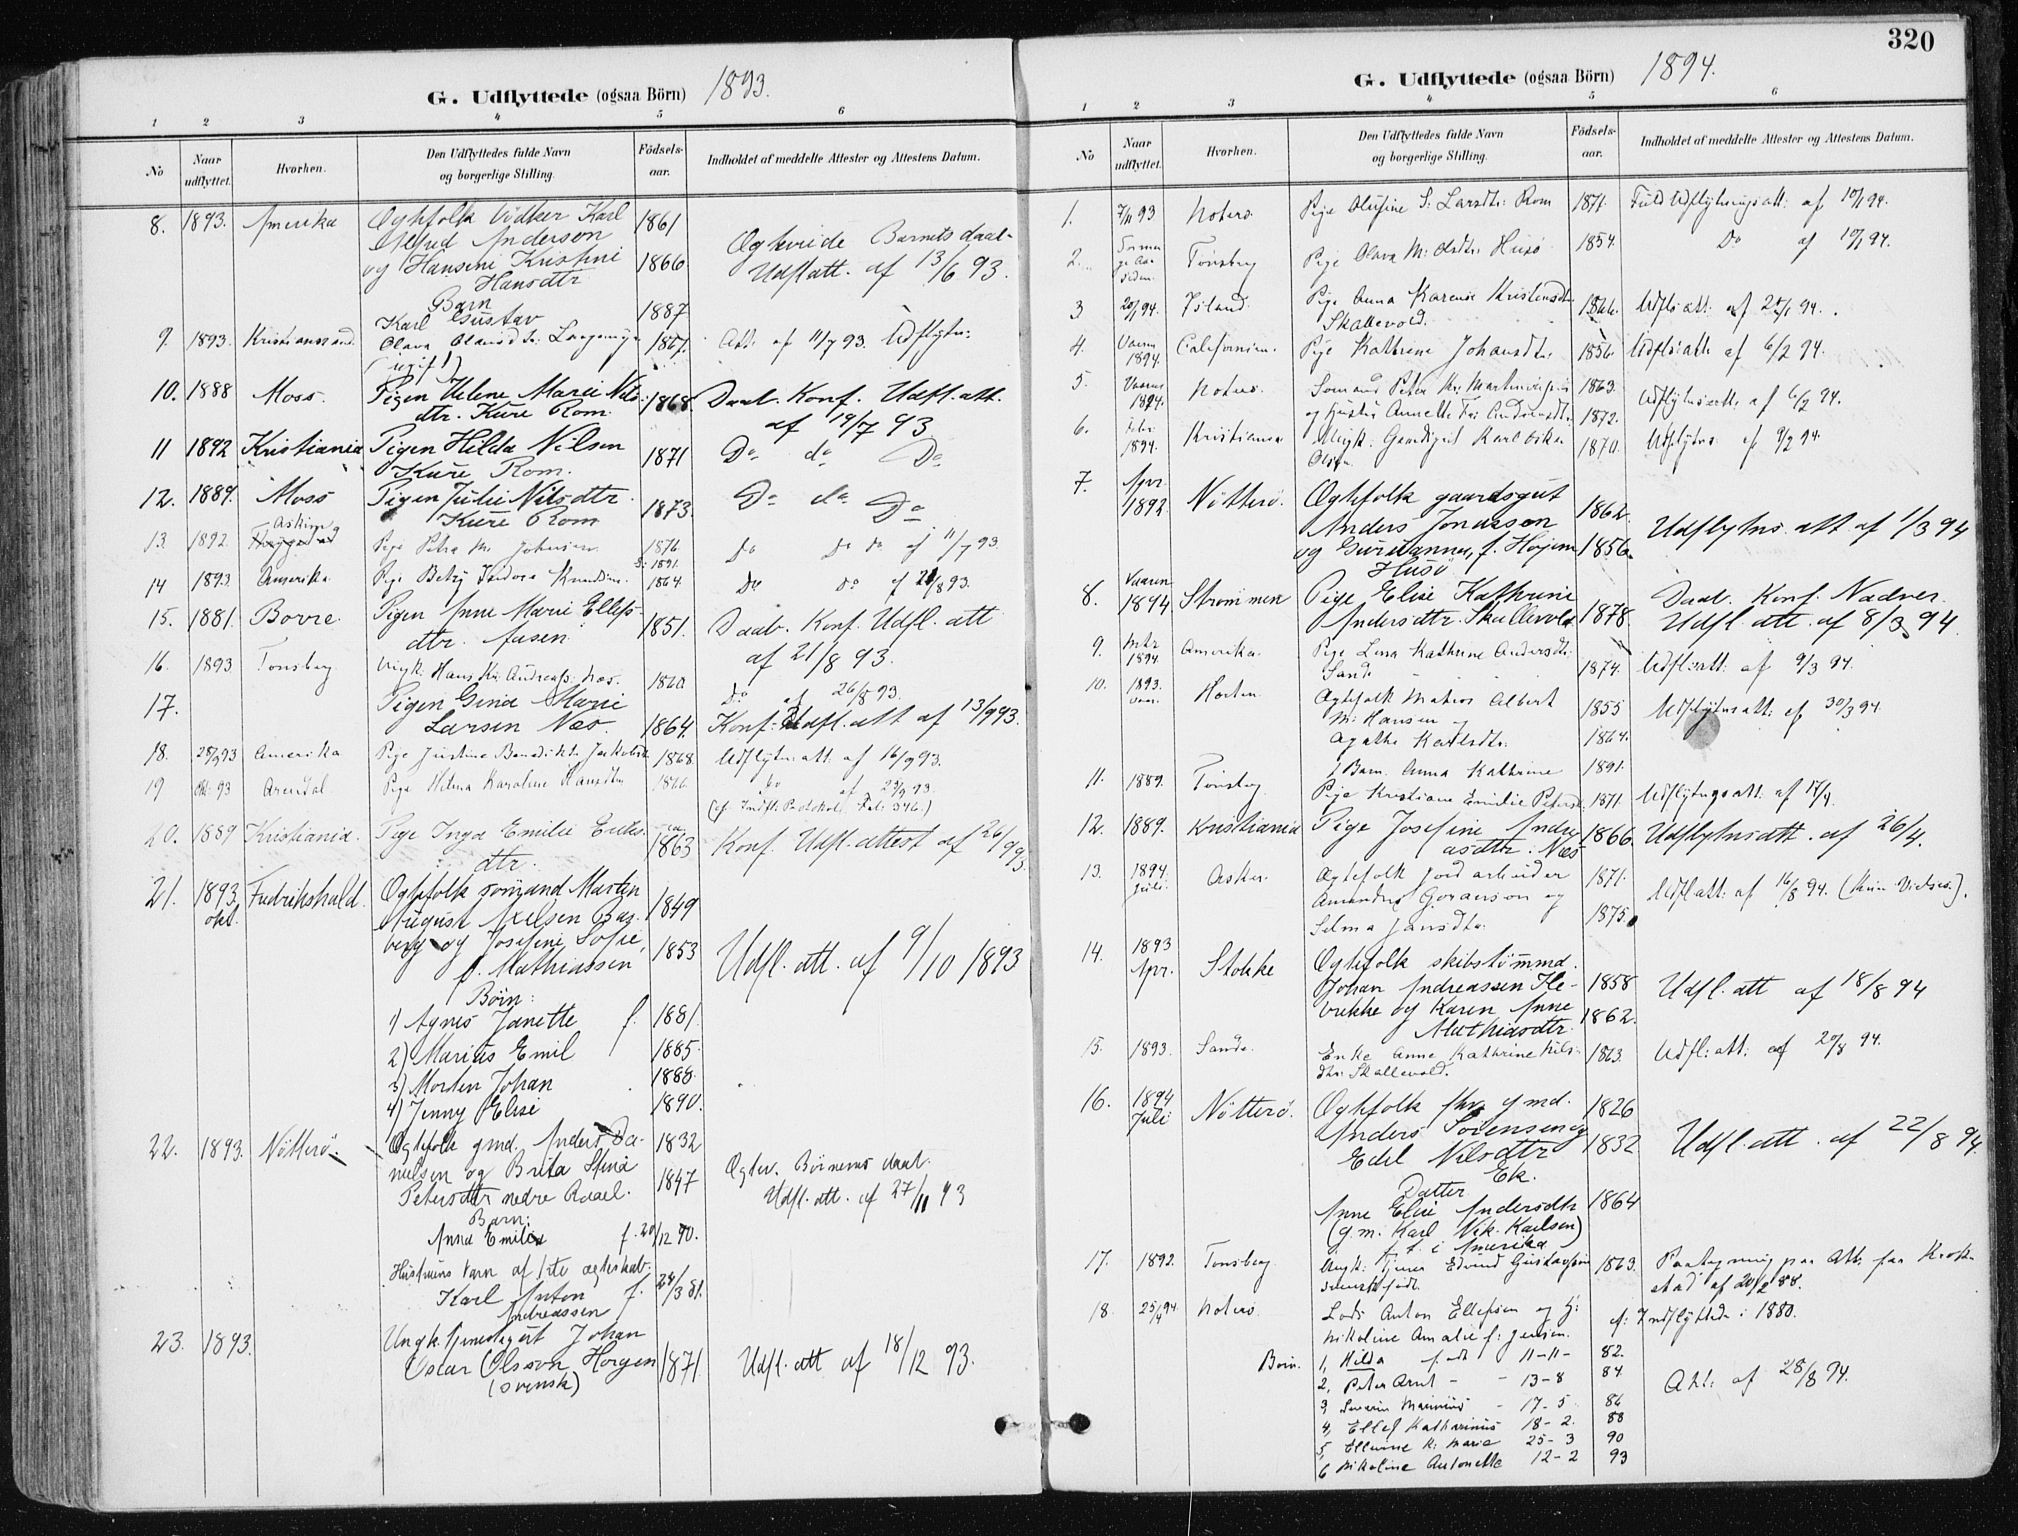 G. Udflyttede (ogsaa Börn) 1893.
1 2 3 4 5 6
No
Naar udflyttet.
Hvorhen.
Den Udflyttedes fulde Navn og borgerlige Stilling.
Födsels-aar.
Indholdet af meddelte Attester og Attestens Datum.
8. 1893. Amerika Ægtefolk Karl 1861
Alfred Anderson Ægtevide Barnets daab-
og Hansine Kristine 1866 Udflatt. af 13/6 93.
Hansdtr
Barn
Karl Gustav 1887
9. 1893. Kristianssand. Olava Olausdtr. 1867. Att. af 11/7 93. Udflytn:
(ugift)
10. 1888 Moss. Pigen Helene Marie Nils- 1868. Daab. Konf. Udfl. att.
dtr. Kure Rom. af 19/7 93
11 1892 Kristiania Pigen Hilda Nilsen 1871 Do do Do
Kure Rom.
12. 1889. Moss Pigen Julie Nilsdtr. 1873. Do do Do
Kure Rom
Askim
13. 1892. Pige Petra M. Johansen 1876 do do do af 11/7 93
14 1893. Amerika. Pige Betzy Isidora Knudsen. 1864. do do af 21/8 93.
15. 1881. Borre Pigen Anne Marie Ellefs- 1851. Daab. Konf. Udfl. att
dtr. Aasen af 21/8 93.
16. 1893 Tonsberg Ungk. Hans Kr. Andreass. Næs. 1860 do af 26/8 93.
17. Pigen Gina Marie
Larsen Næs. 1864. Konf. Udfl. att af 13/9 93.
18. 25/9 93 Amerika Pige Justine Benedikte Jakobsdtr 1868. Udflytn: att. af 16/9 93.
19 Okt. 93 Arendal Pige Helena Karoline Hansdtr 1866. do af 25/9 93.
(cf Indfl. Protokol Fol: 346.)
20. 1889 Kristiania. Pige Inga Emilie Eriks- 1863 Konf. Udfl. attest af 26/9 93
dtr.
21. 1893. Fredrikshald. Ægtefolk sømand Martin
okt. August Axelsen Bag- 1849
berg og Josefine Sofie, 1853 Udfl. att. af 9/10 1893
f. Mathiassen
Børn:
1) Agnes Janette f. 1881.
2) Marius Emil 1885.
3) Morten Johan 1888.
4) Jenny Elise 1890.
22. 1893. Nötterö. Ægtefolk gmd. Anders Da- 1832
nielsen og Brita Stina 1847 Ægtev. Børnenes daab.
Petersdtr nedre Raael. Udfl. att. af 27/11 93
Barn:
Anna Emilie f. 20/12 90.
Hustruens barn af 1ste ægteskab:
Karl Anton f. 24/3 81.
Andreassen
23. 1893. Ungk. tjenestegut Johan
Oscar Olsson Horgen 1871. Udfl. att af 18/12 93.
(svensk)
320
G. Udflyttede (ogsaa Börn) 1894.
1 2 3 4 5 6
No
Naar udflyttet.
Hvorhen.
Den Udflyttedes fulde Navn og borgerlige Stilling.
Födsels-aar.
Indholdet af meddelte Attester og Attestens Datum.
1. 7/11 93 Noterø. Pige Olufine S. Larsdtr. Rom 1871. Fuld Udflytningsatt. af 10/1 94.
2. Tonsberg Pige Olava M. Olsdtr. Husø 1854. Do af 10/1 94.
3 20/1 94. Island. Pige Anna Karense Kristensdtr. 1866. Udfls. att. af 25/1 94.
Skallevold.
4. Vaaren 1894. Californien. Pige Kathrine Johansdtr. 1856. Udfls: att. af 6/2 94.
5. Vaaren 1894. Noterø. Sømand Peter Kr. Martiniusen 1863. Udflytnsatt. af 6/2 94.
og Hustru Annette Andersdtr. 1872.
6. Febr. 1894. Kristiania Ungk. Gaardsgut Karl Oskar 1870. Udflytns. af 9/2 94.
Olsen.
7. Apr. 1892. Nötterö. Ægtefolk gaardsgut 1862.
Anders Jonassen Udflytns. att af 1/3 94
og f. Hojem 1856.
Husø
8. Vaaren 1894 Strommen Pige Elise Kathrine Daab. Konf. Nadver.
Andersdtr. Skallevold 1878. Udfl. att. af 8/3 94.
9. Mts 1894. Amerika. Pige Lina Kathrine Andersdtr. 1874. Udfl: att. af 9/3 94.
Sande
10. 1893. Horten Ægtefolk Matros Albert 1855 Udflytns att. af 30/3 94.
M. Hansen og
Agathe Karlsdtr. 1864.
1 Barn. Anna Kathrine 1891.
11. 1889. Tønsberg Pige Kristiane Emilie Petersdtr 1871. Udflytngsatt. af 17/4.
12. 1889. Kristiania Pige Josefine Andre- 1866. Udflytnsatt. af 26/4.
asdtr. Næs
13. 1894. Juli Asker. Ægtefolk jordarbeider 1871.
Amandus Göranson og Udflatt: af 16/8 94.
Selma Jansdtr. 1875.
14. 1893 Apr. Stokke Ægtefolk skibstømmd.
Johan Andreassen Hle- 1858 Udfl. att af 18/8 94
vekke og Karen Anne 1862.
Mathiasdtr.
15. 1893. Sande. Enke Anne Kathrine Nils- 1863. Udfl: att: af 20/8 94.
dtr. Skallevold.
16. 1894 Juli Nötterö. Ægtefolk fhv. gmd. 1826
Anders Sørensen og 1832 Udfl. att. af 22/8 94.
Edel Nilsdtr
Ek.
Datter
Anne Elise Andersdtr 1864
(g. m. Karl Nik. Karlsen)
f. t. i Amerika
17. 1892. Tonsberg. Ungk. tjener Edvard Gustafson 1863. Paategning paa Att. fra Krok-
svenskfødt. stad af 20/2 88.
18. 25/4 94. Noterø. Lods Anton Ellefsen og H: cf: Indflyttede i 1880.
Nikoline Amalie f: Jensen.
Børn. 1, Hilda født 11-11- 82.
2, Peter Arnt - - 13-8 84
3, Severin Marinius - 17-5 86
4, Ellef Katharinus 18-2. 88
5, Ellevine K: Marie 25-3 90
6 Nikoline Antonette 12-2 93
Att: af 28/8 94.